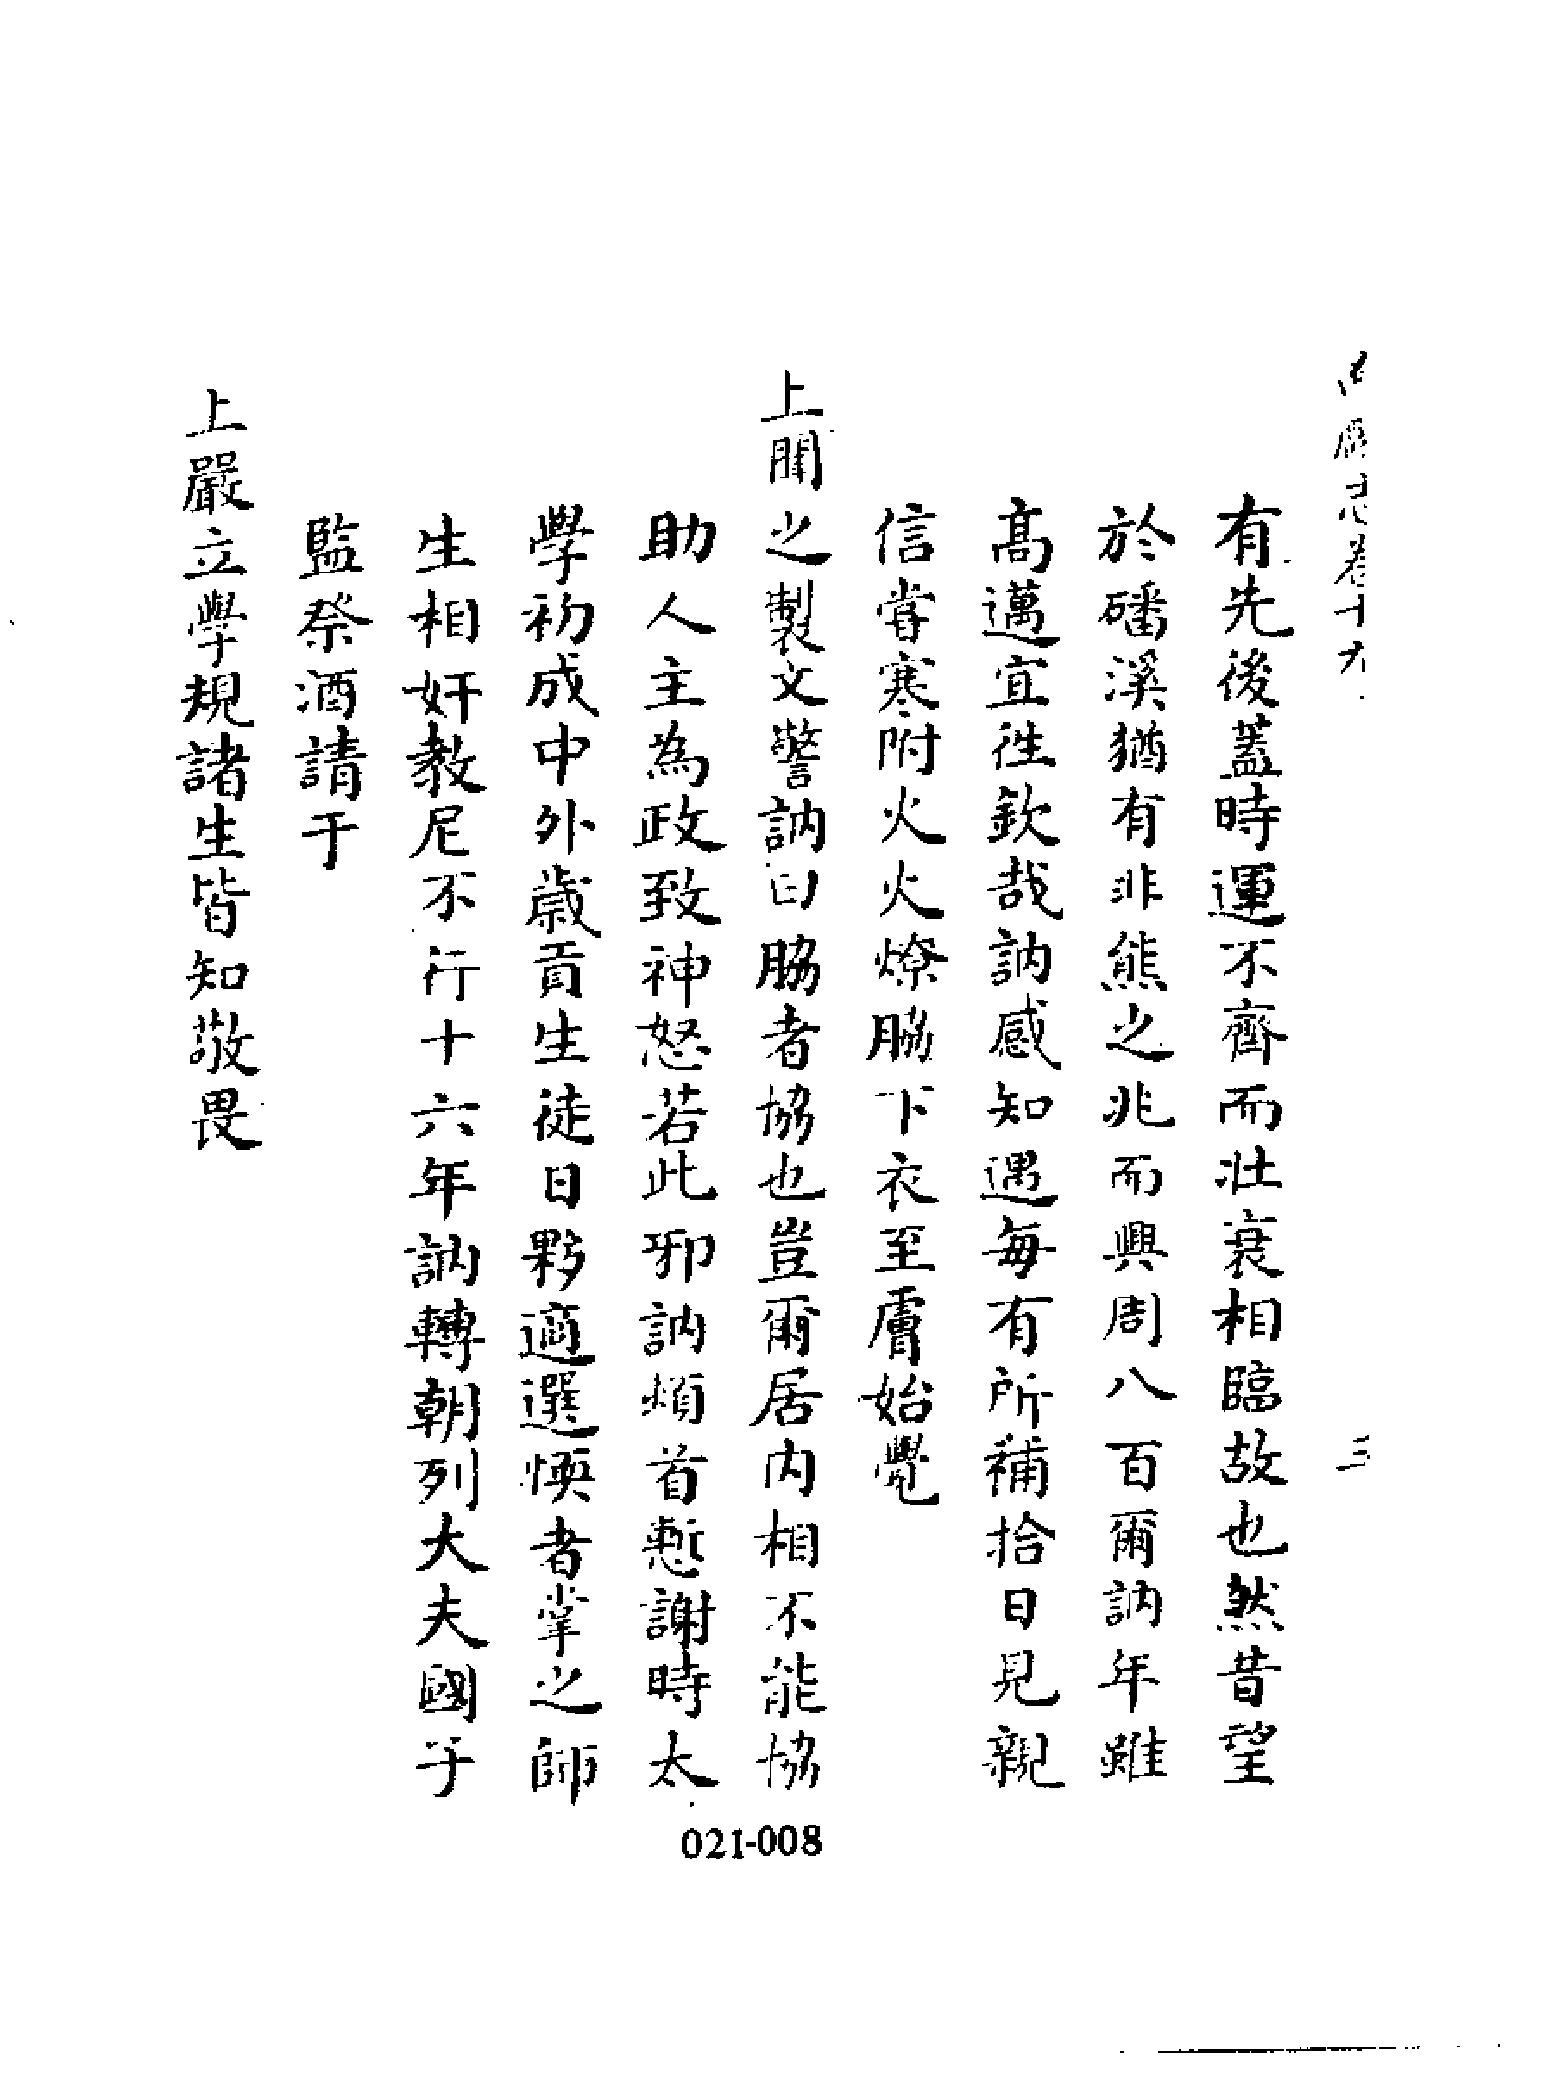 志卷十九
三
有先後蓋時運不齊而壯衰相臨故也然昔望
於磻溪猶有非熊之兆而興周八百爾訥年雖
髙邁宜徃欽哉訥感知遇每有所補拾日見親
信甞寒附火火燎脇下衣至膚始覺
上聞之製文警訥曰脇者協也豈爾居內相不能協
助人主為政致神怒若此邪訥頓首慙謝時太
學初成中外歲貢生徒日夥適選愞者掌之師
生相奸教尼不行十六年訥轉朝列大夫國子
監祭酒請于
上嚴立學規諸生皆知敬畏
021-008